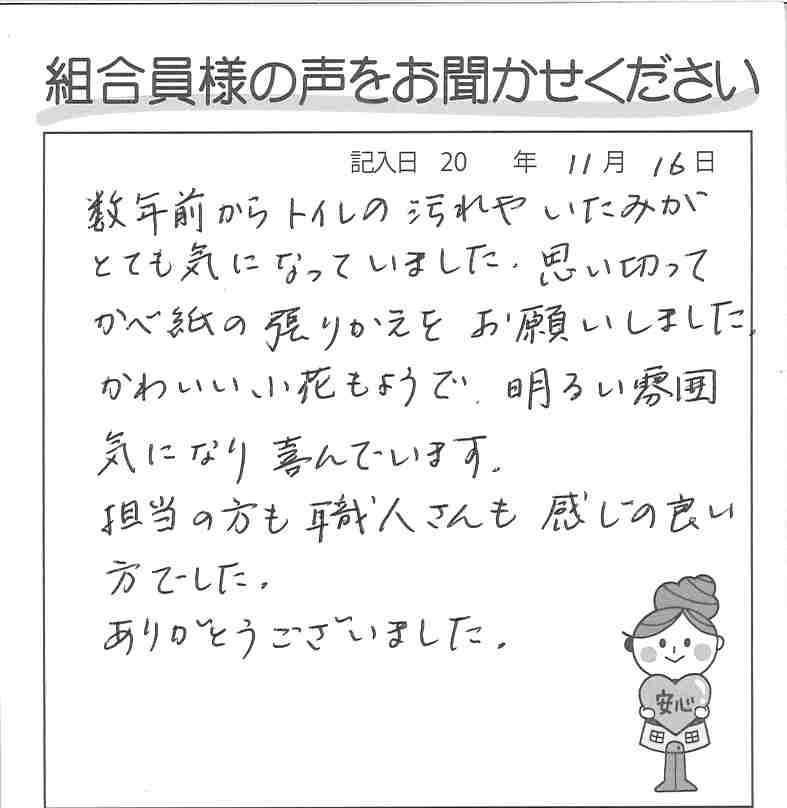 組合員様の声をお聞かせください
記入日 20 年 11月 16日
数年前からトイレの汚れやいたみが
とても気になっていました。思い切って
かべ紙の張りかえをお願いしました。
かわいい小花もようで、明るい雰囲
気になり喜んでいます。
担当の方も職人さんも感じの良い
方でした。
ありがとうございました。
安心